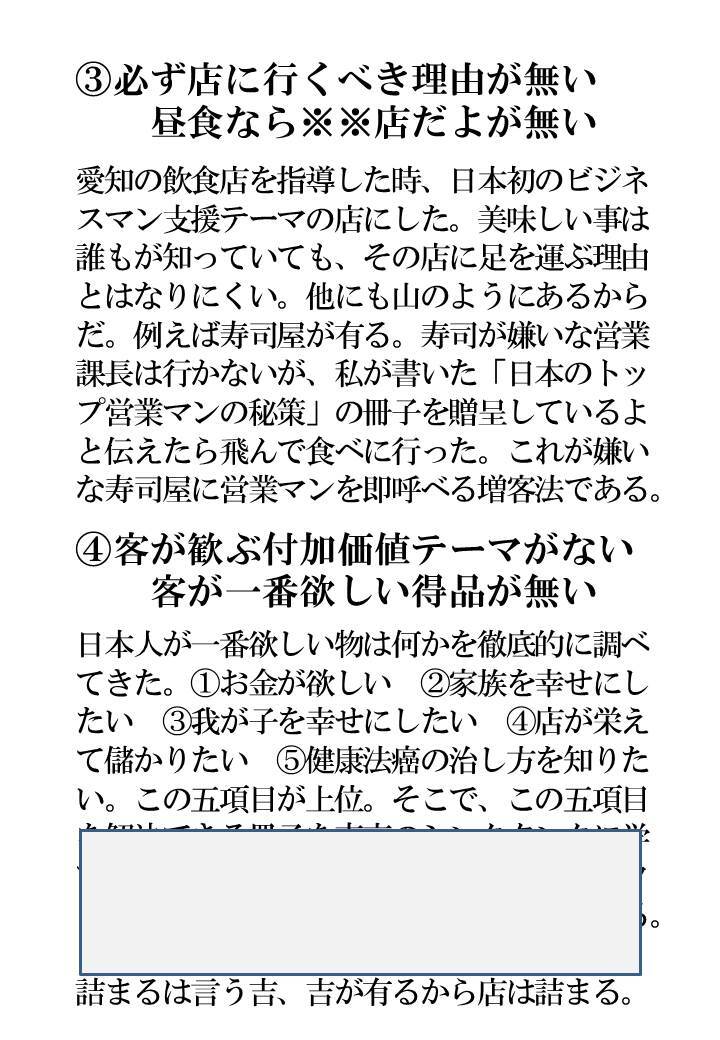 ③必ず店に行くべき理由が無い
昼食なら※※店だよが無い
愛知の飲食店を指導した時、日本初のビジネ
スマン支援テーマの店にした。美味しい事は
誰もが知っていても、その店に足を運ぶ理由
とはなりにくい。他にも山のようにあるから
だ。例えば寿司屋が有る。寿司が嫌いな営業
課長は行かないが、私が書いた「日本のトッ
プ営業マンの秘策」の冊子を贈呈しているよ
と伝えたら飛んで食べに行った。これが嫌い
な寿司屋に営業マンを即呼べる増客法である。
④客が歓ぶ付加価値テーマがない
客が一番欲しい得品が無い
日本人が一番欲しい物は何かを徹底的に調べ
てきた。①お金が欲しい　②家族を幸せにし
たい　③我が子を幸せにしたい　④店が栄え
て儲かりたい　⑤健康法癌の治し方を知りた
い。この五項目が上位。そこで、この五項目
る。
詰まるは言う吉、吉が有るから店は詰まる。